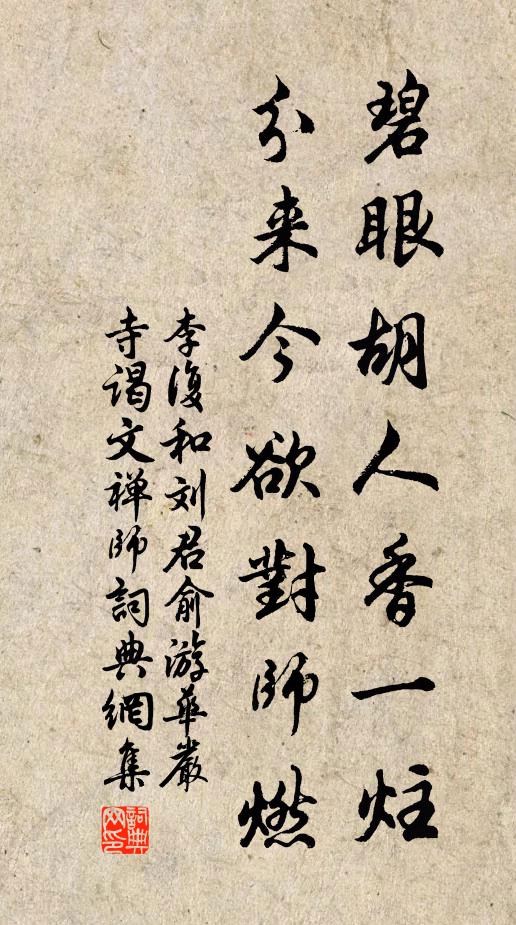 碧眼胡人香一炷
分来今欲對師燃
李復和刘君俞游華嚴
寺谒文禅師詞典網集
詞典网印